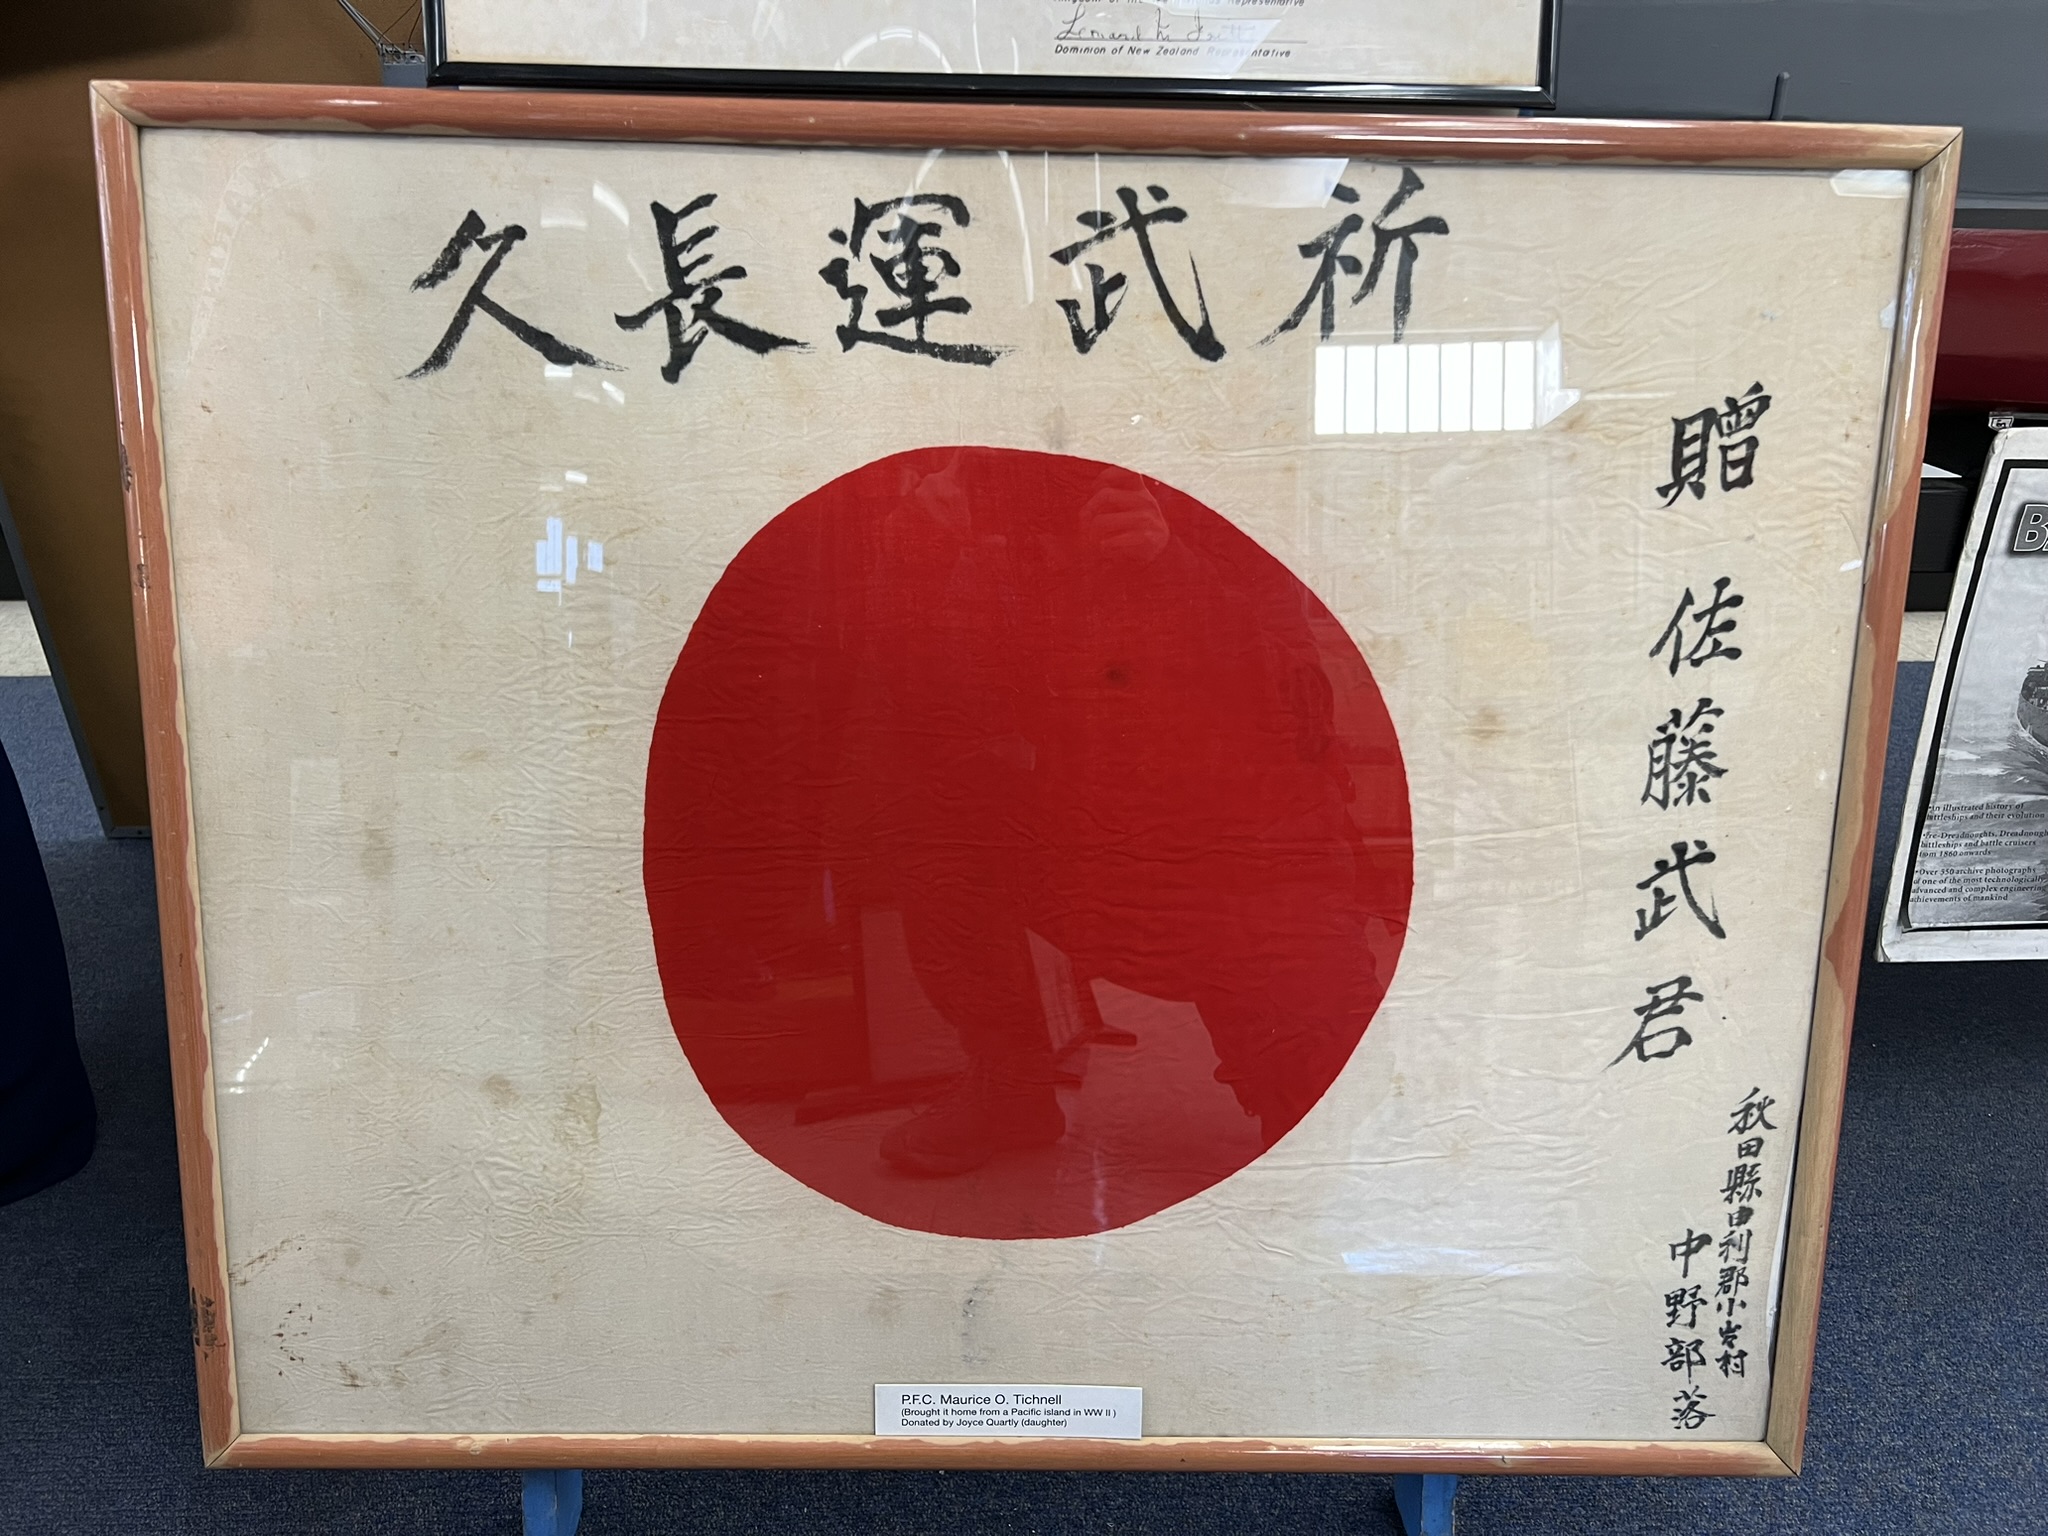 Dominion of New Zealand Representative
祈武運長久
贈 佐藤武君
秋田縣由利郡小岩村
中野部落
P.F.C. Maurice O. Tichnell
(Brought it home from a Pacific island in WW II )
Donated by Joyce Quartly (daughter)
An illustrated history of
battleships and their evolution
Pre-Dreadnoughts, Dreadnough
battleships and battle cruisers
from 1860 onwards
Over 350 archive photographs
of one of the most technologically
advanced and complex engineering
achievements of mankind